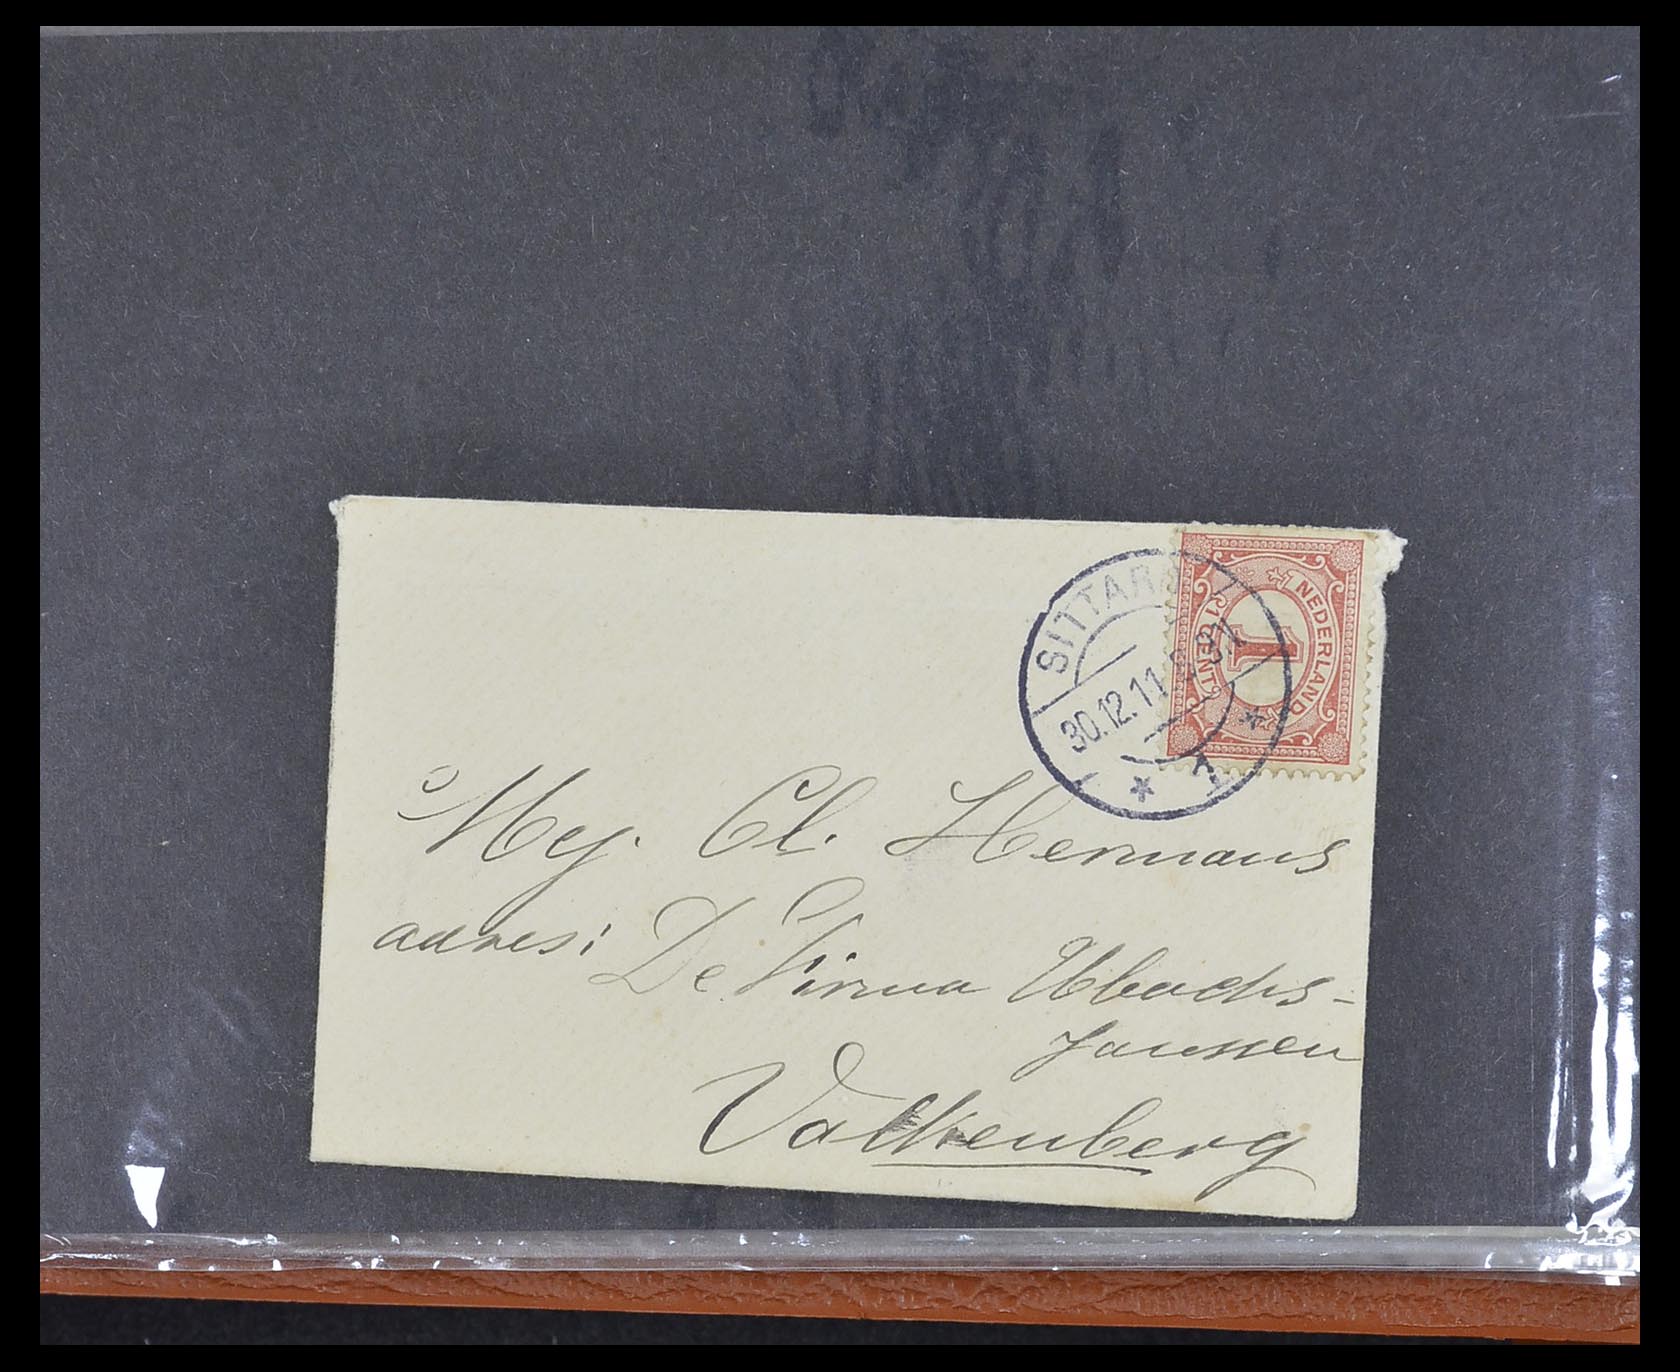 SITTARD
30.12.11
1
NEDERLAND
1
1 CENT
Mej. Cl. Hermans
adres: De Firma Ubachs-
Janssen
Valkenberg